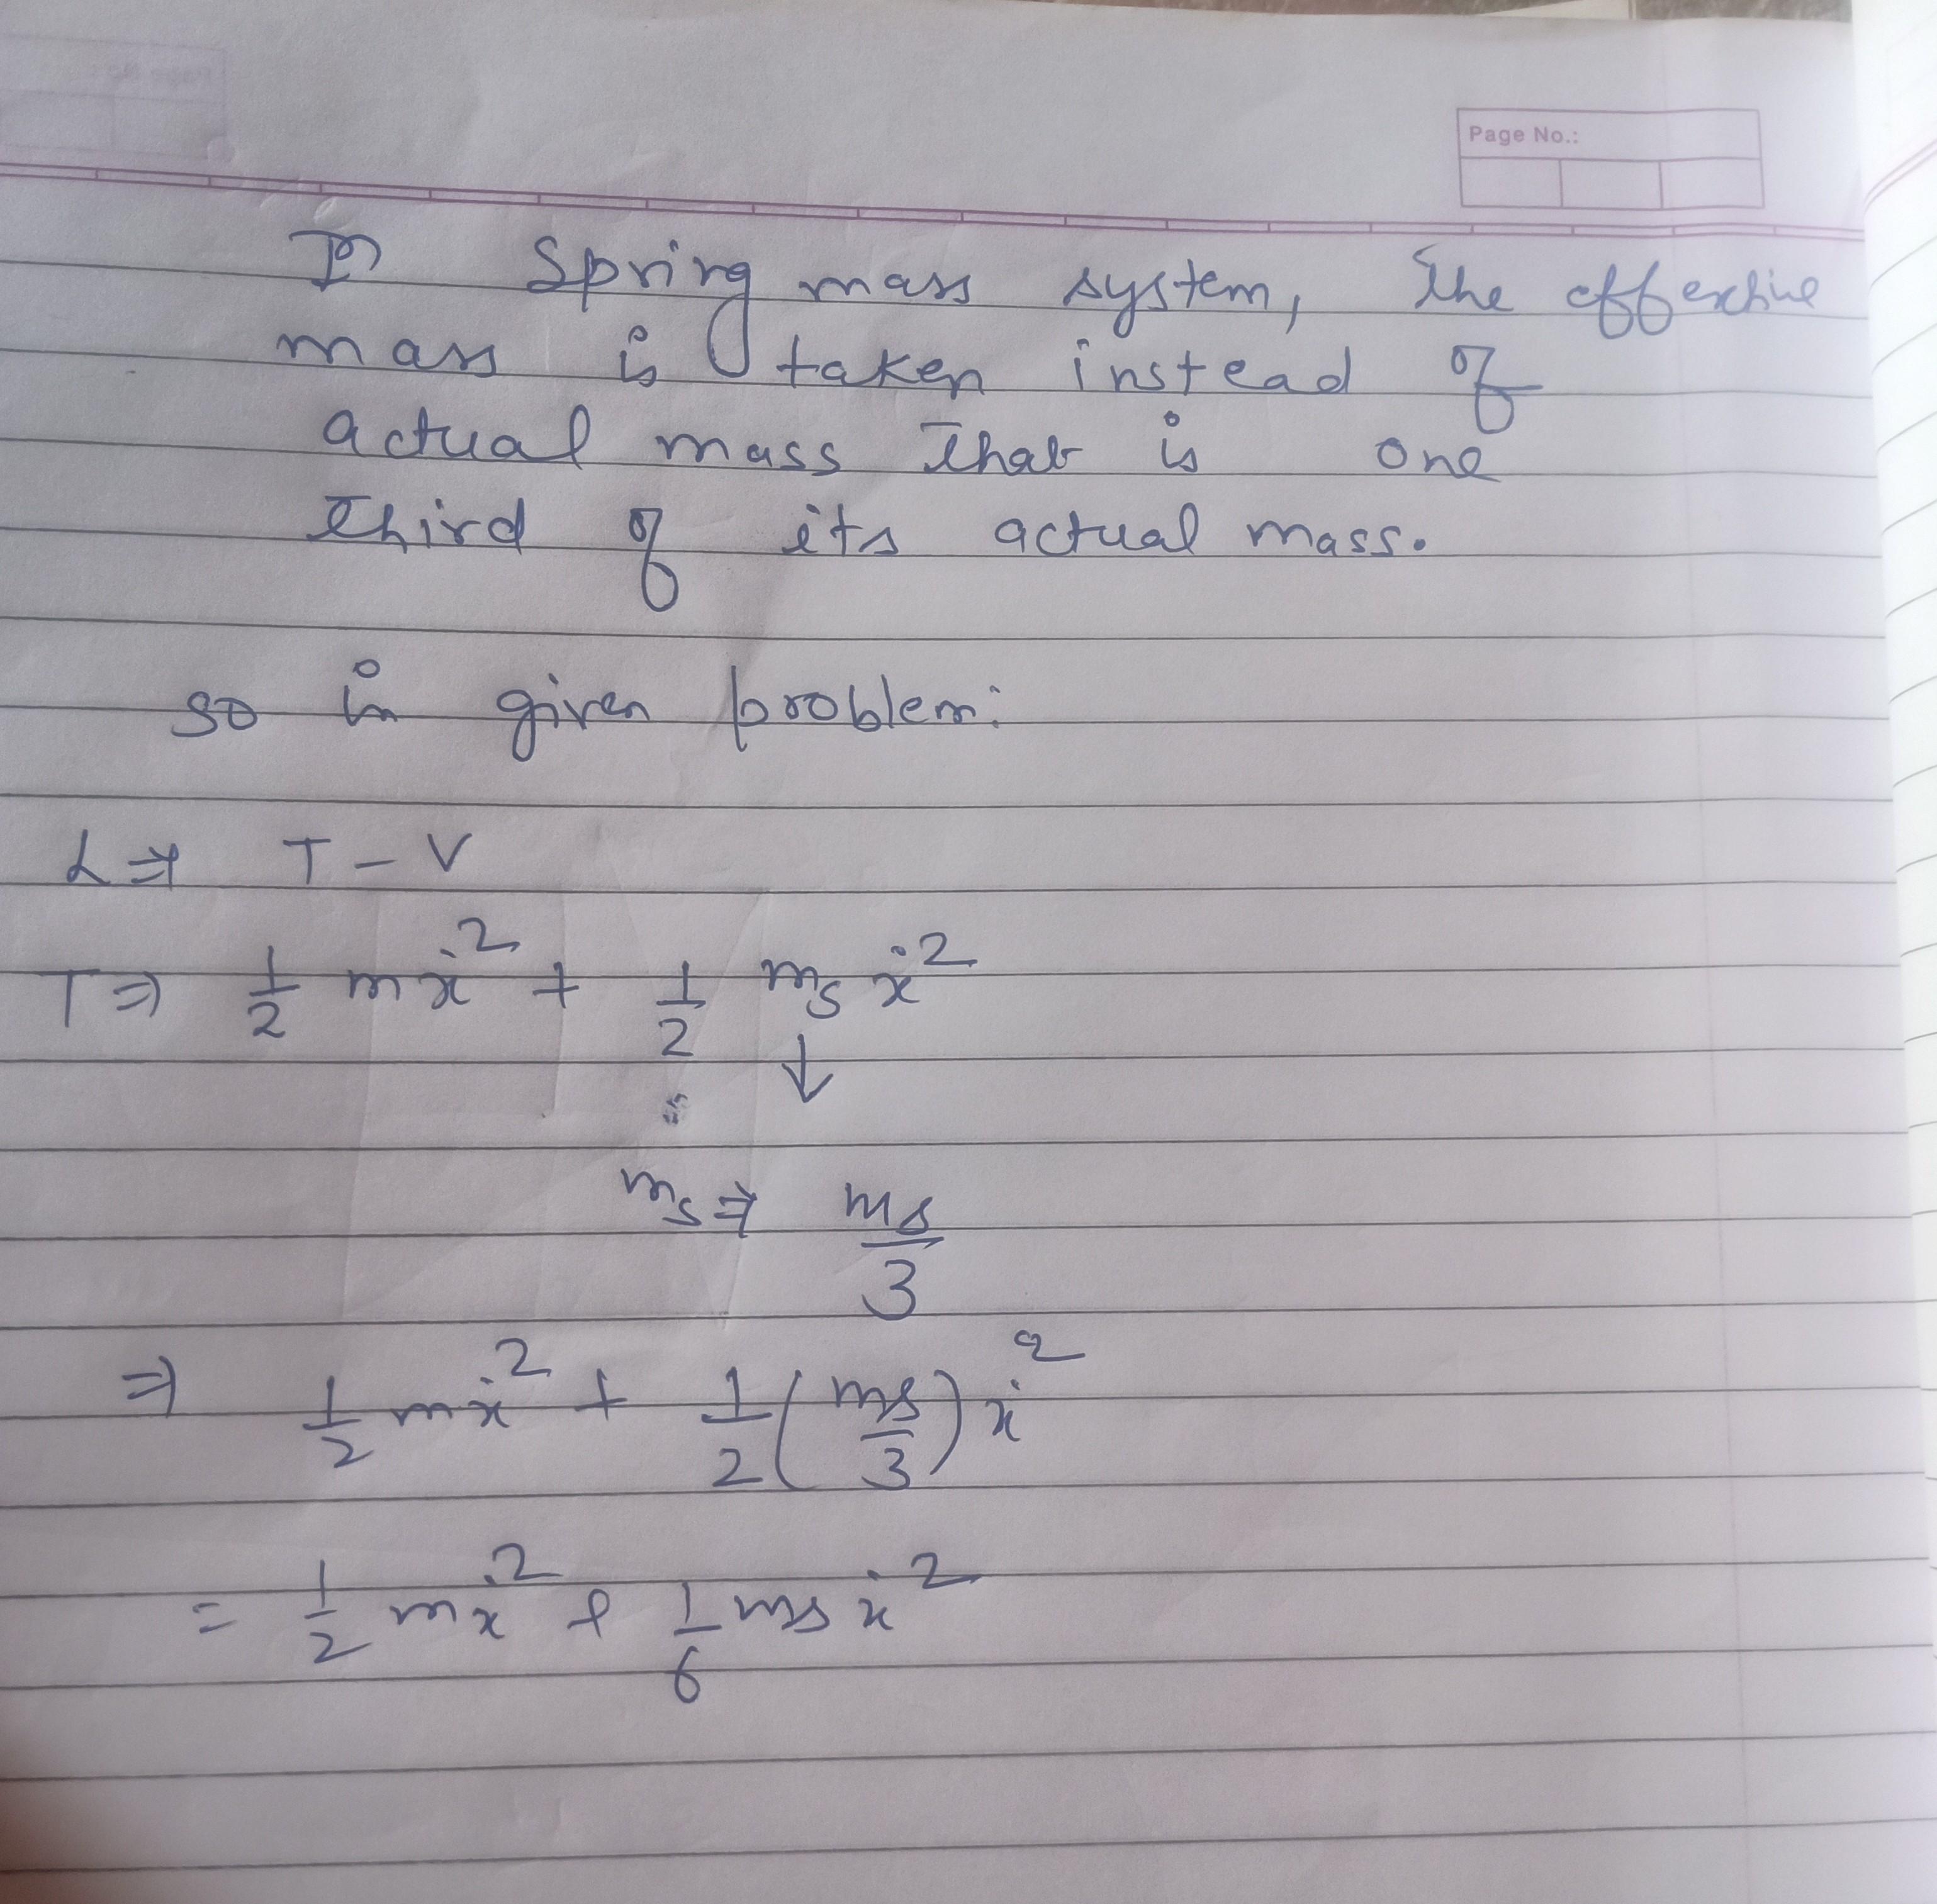 Page No.:
In Spring mass system, the effective
mass is taken instead of
actual mass that is one
third of its actual mass.
so in given problem:
L ⇒ T - V
T ⇒ 1/2 mẋ² + 1/2 m_s ẋ²
↓
m_s ⇒ m_s/3
⇒ 1/2 mẋ² + 1/2 (m_s/3) ẋ²
= 1/2 mẋ² + 1/6 m_s ẋ²